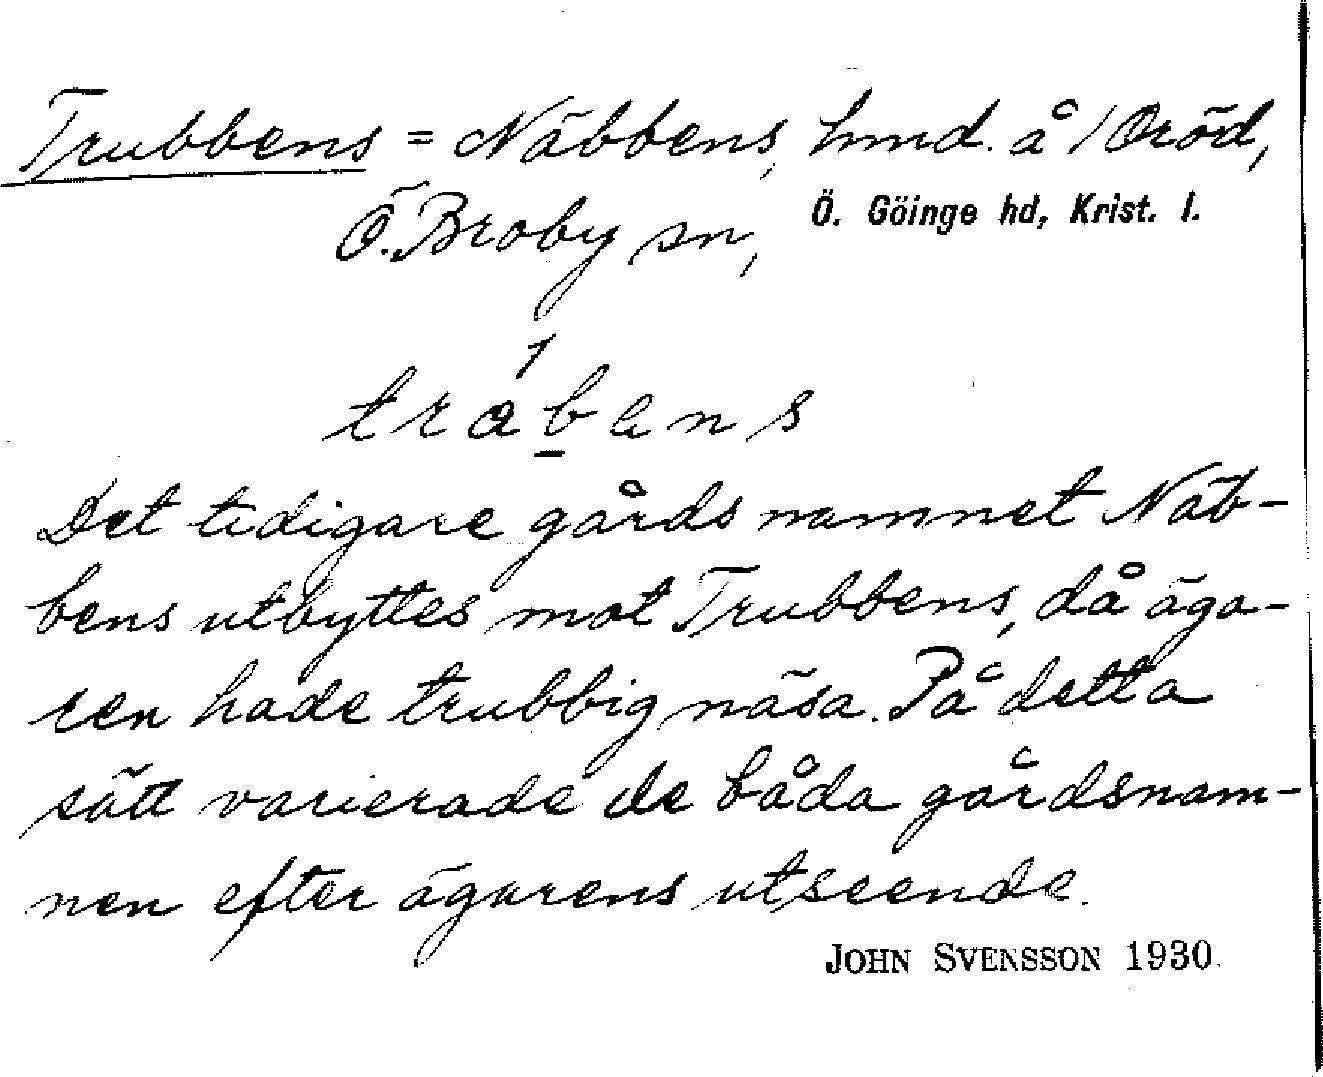 Trubbens = Näbbens, hmd. å 1 Oröd,
Ö. Broby sn, Ö. Göinge hd, Krist. l.
trabens
Det tidigare gårdsnamnet Näb-
bens utbyttes mot Trubbens, då äga-
ren hade trubbig näsa. På detta
sätt varierade de båda gårdsnam-
nen efter ägarens utseende.
JOHN SVENSSON 1930.